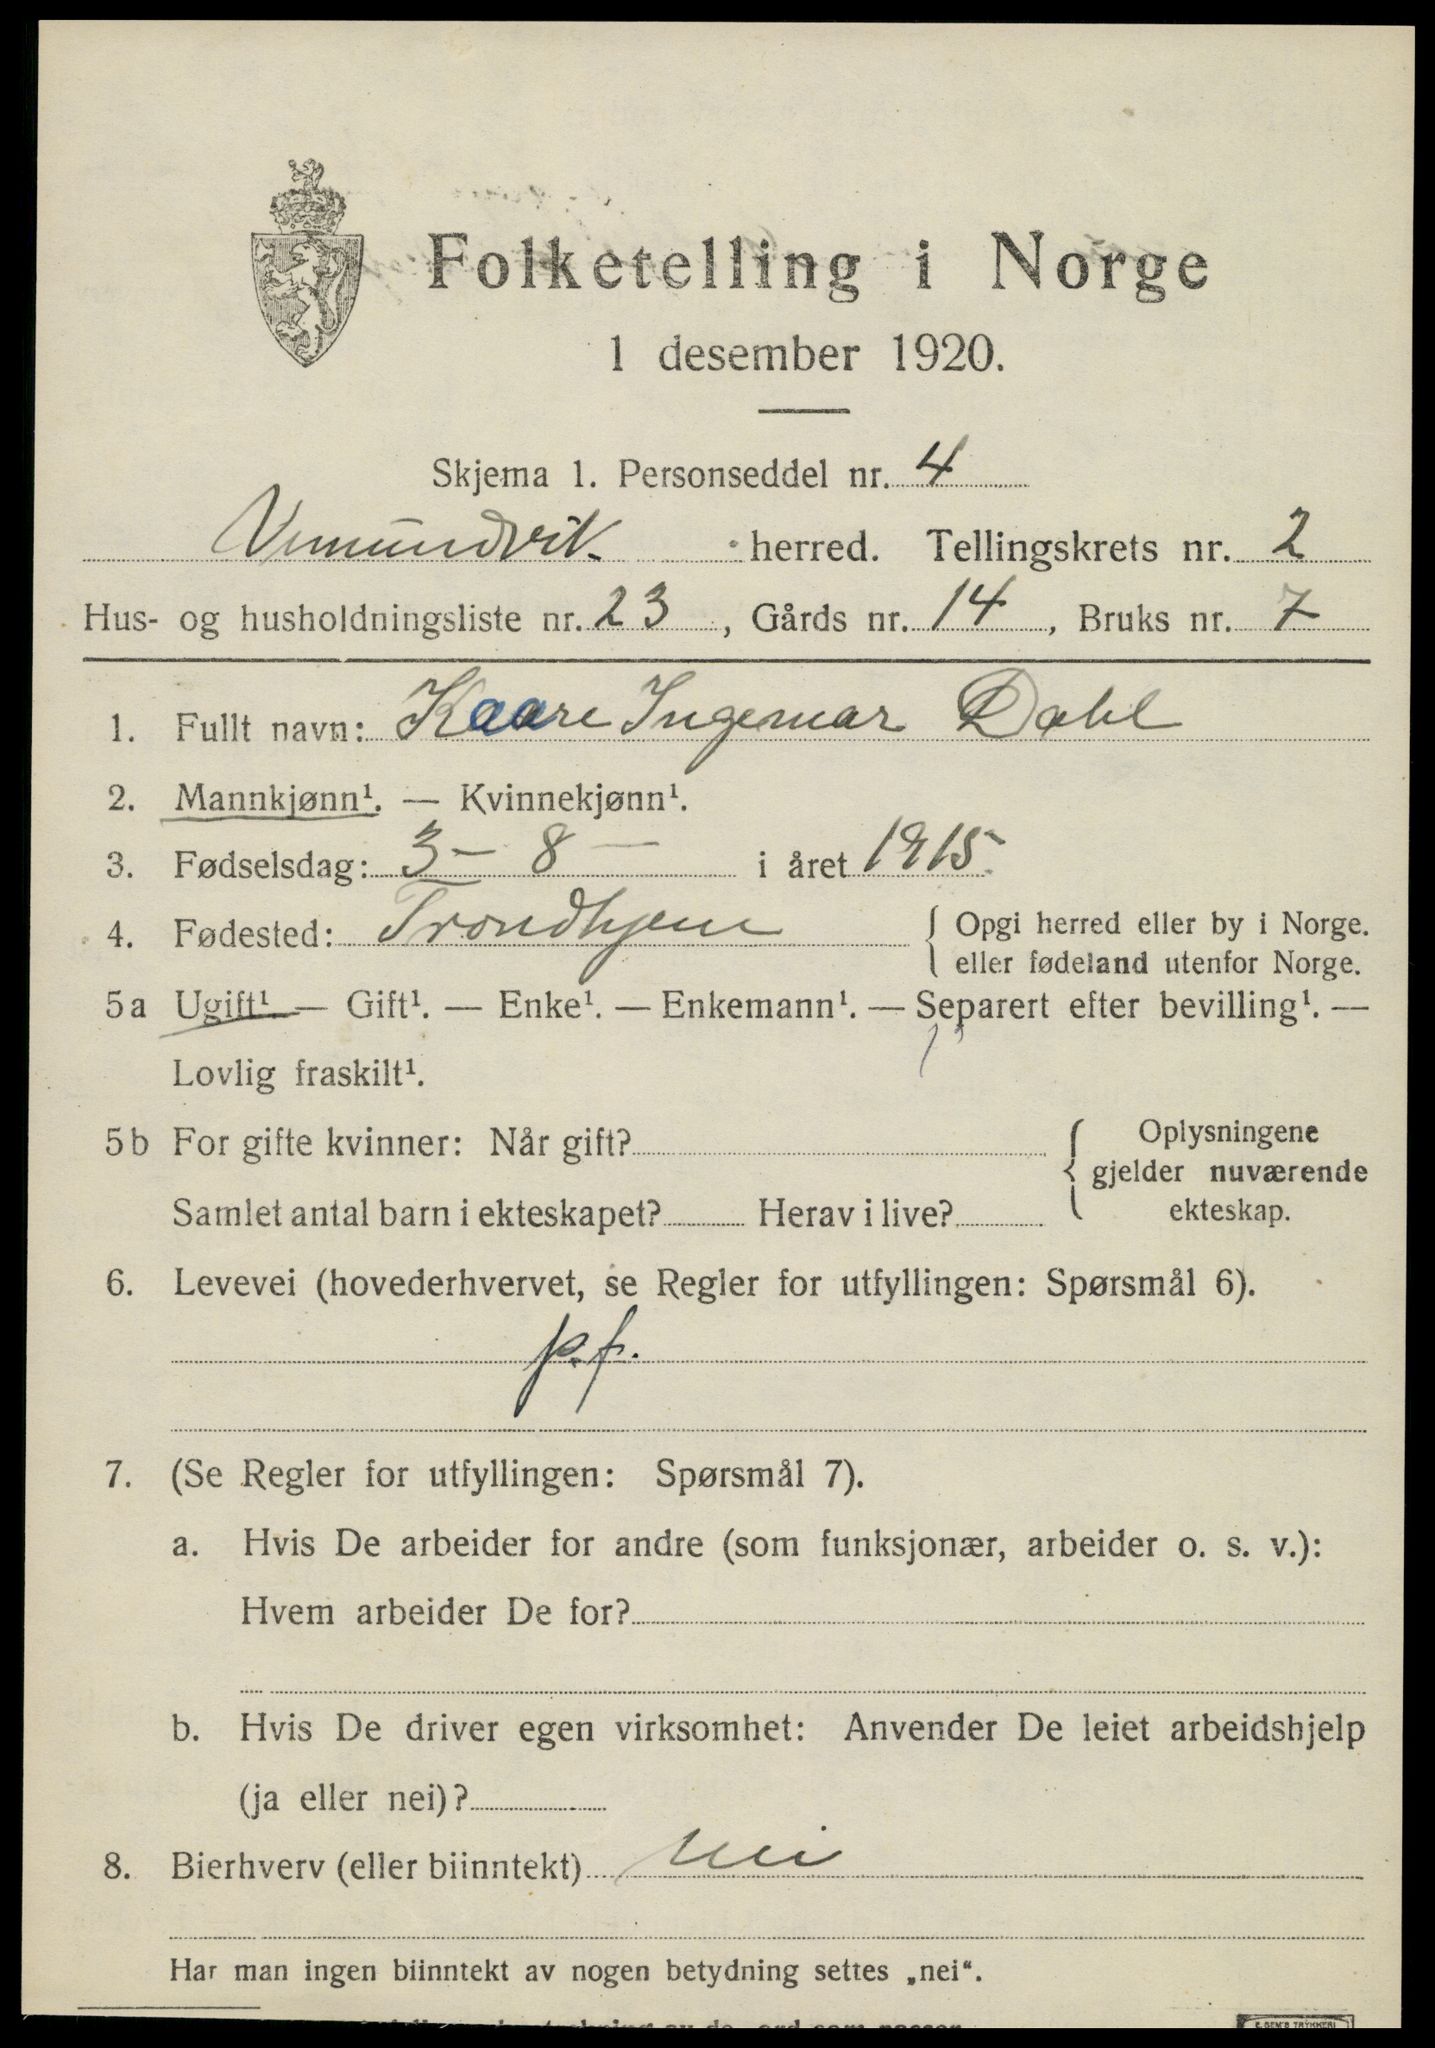 Folketelling i Norge
1 desember 1920.
Skjema 1. Personseddel nr. 4
Vemundvik herred. Tellingskrets nr. 2
Hus- og husholdningsliste nr. 23, Gårds nr. 14, Bruks nr. 7
1. Fullt navn: Kaare Ingemar Dahl
2. Mannkjønn¹. — Kvinnekjønn¹.
3. Fødselsdag: 3 – 8 – i året 1915.
4. Fødested: Trondhjem { Opgi herred eller by i Norge.
eller fødeland utenfor Norge.
5a Ugift¹. — Gift¹. — Enke¹. — Enkemann¹. — Separert efter bevilling¹. —
Lovlig fraskilt¹.
5b For gifte kvinner: Når gift? { Oplysningene
gjelder nuværende
Samlet antal barn i ekteskapet? Herav i live? ekteskap.
6. Levevei (hovederhvervet, se Regler for utfyllingen: Spørsmål 6).
p.f.
7. (Se Regler for utfyllingen: Spørsmål 7).
a. Hvis De arbeider for andre (som funksjonær, arbeider o. s. v.):
Hvem arbeider De for?
b. Hvis De driver egen virksomhet: Anvender De leiet arbeidshjelp
(ja eller nei)?
8. Bierhverv (eller biinntekt) nei
Har man ingen biinntekt av nogen betydning settes „nei“.